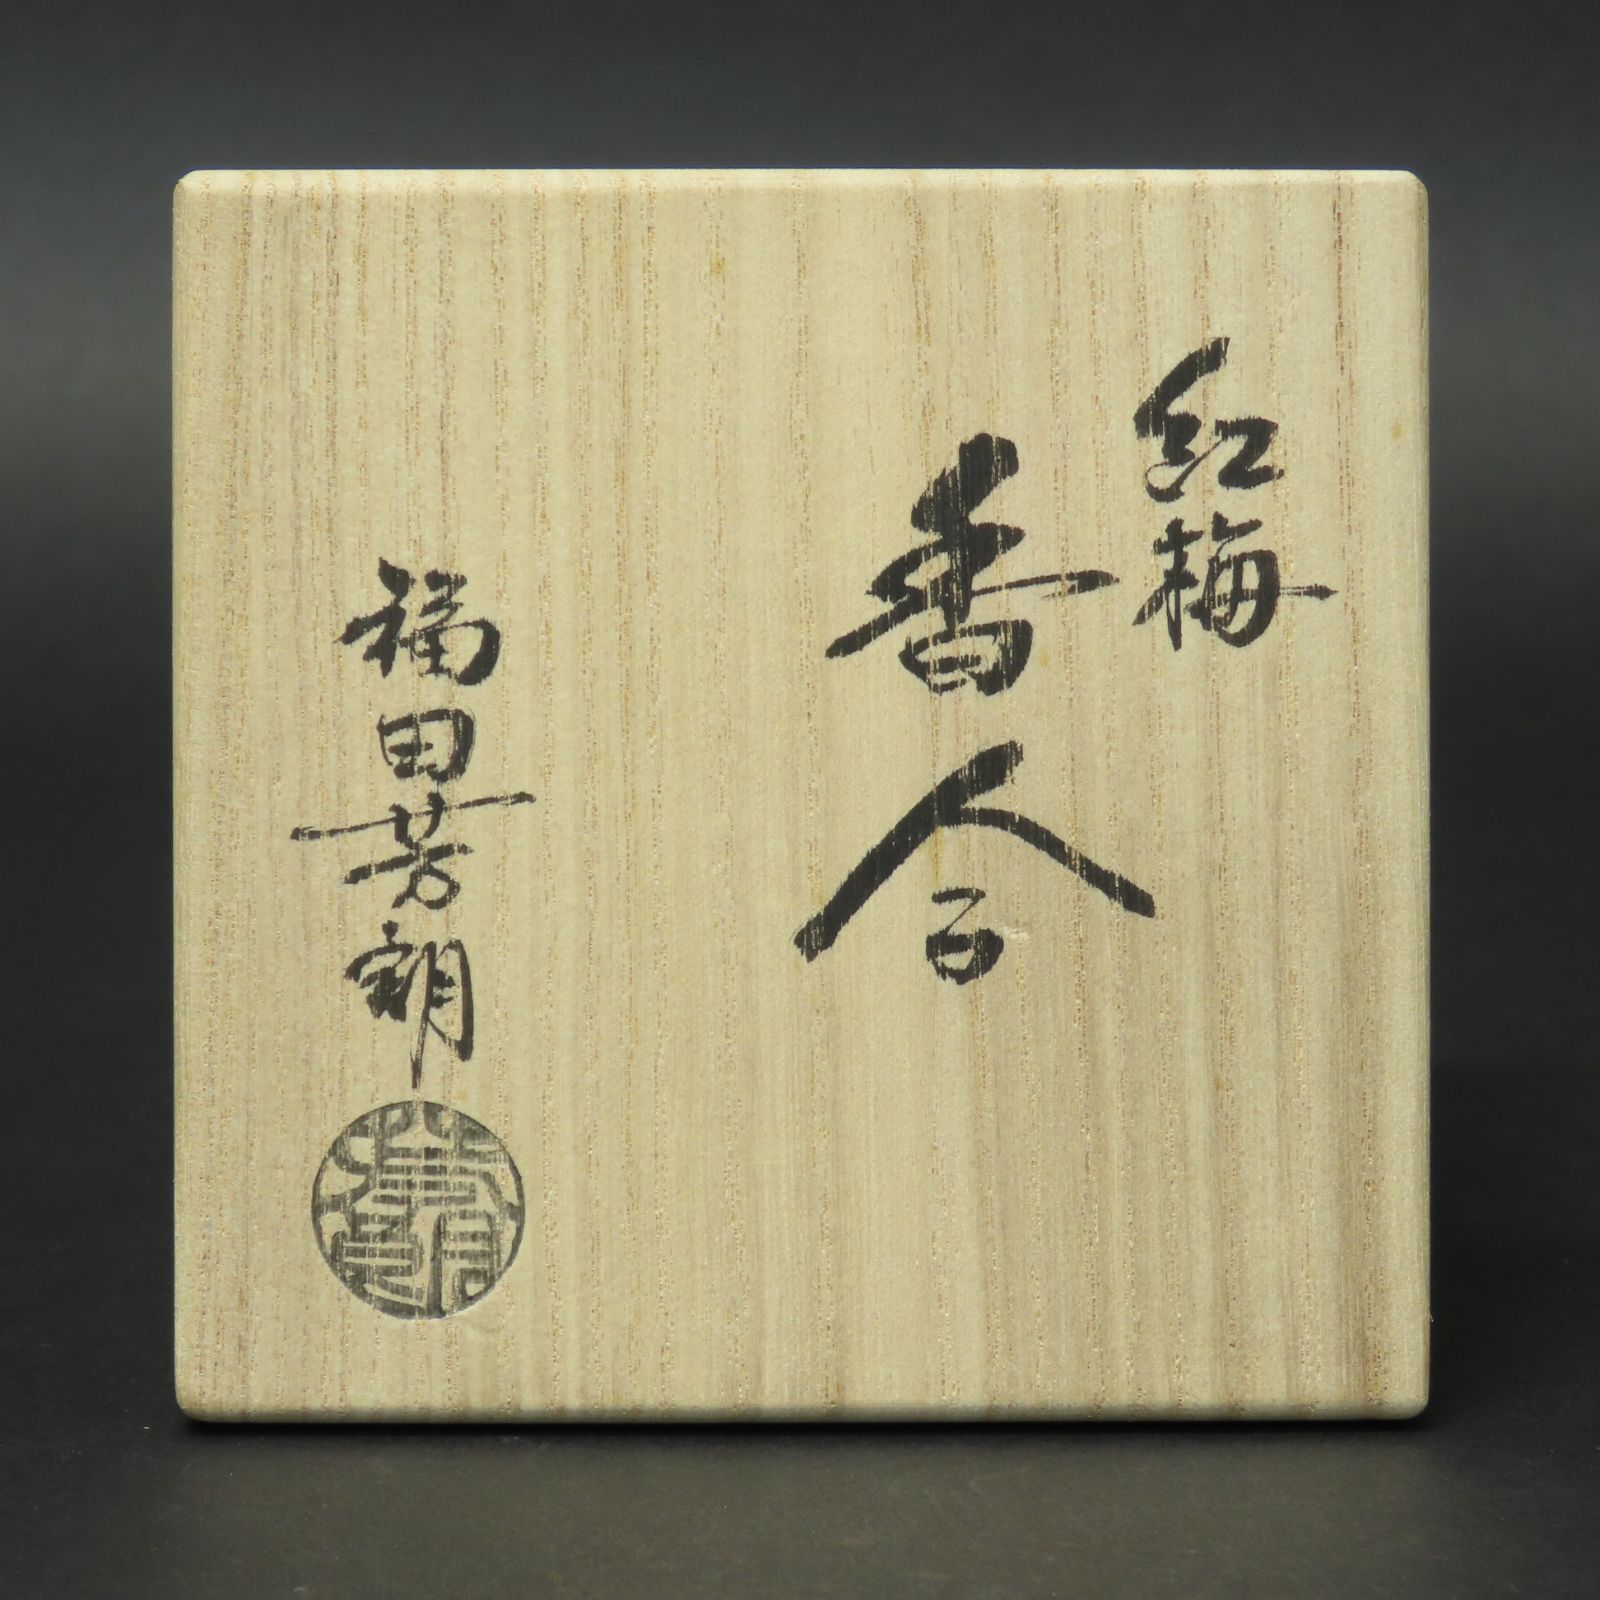 紅梅
香合
福田芳朗